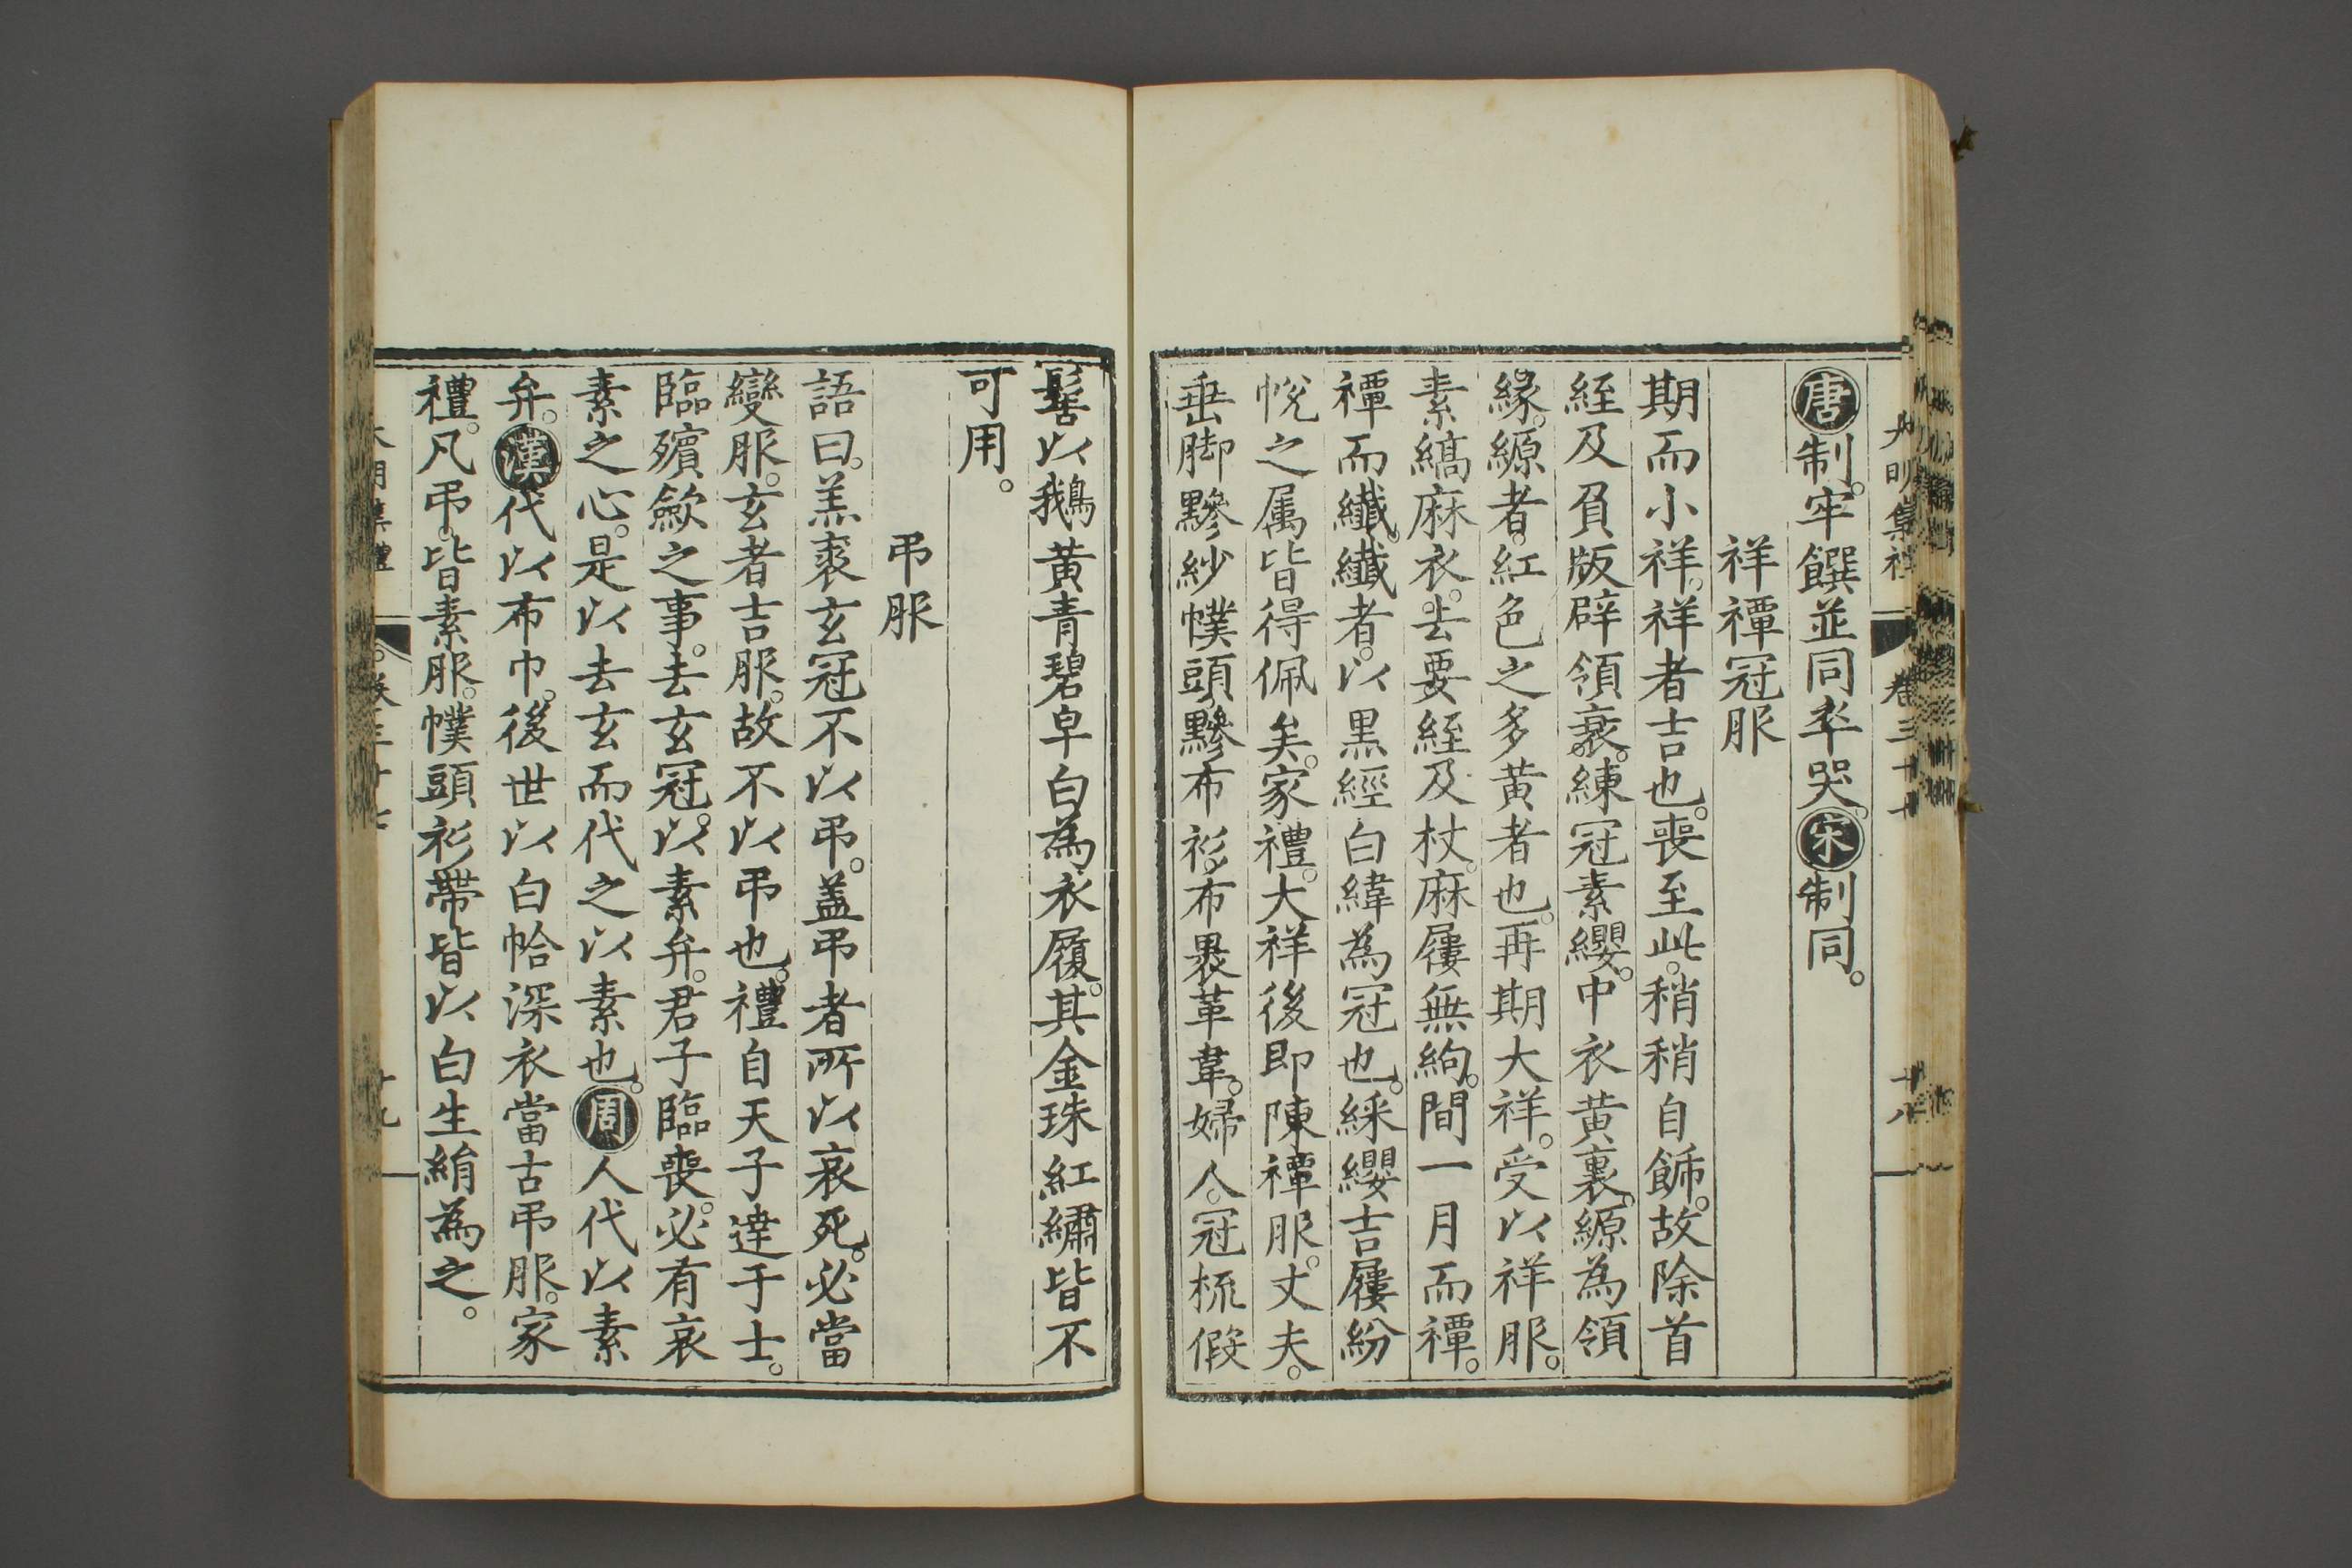 大明集禮 卷三十七 十八
唐制。牢饌並同卒哭。宋制同。
祥禫冠服
期而小祥。祥者吉也。喪至此。稍稍自飾。故除首
絰及負版辟領衰。練冠素纓。中衣黄裏。縓為領
緣。縓者。紅色之多黄者也。再期大祥。受以祥服。
素縞麻衣。去要絰及杖。麻屨無絇。間一月而禫。
禫而纖。纖者。以黒經白緯為冠也。綵纓吉屨紛
帨之属皆得佩矣。家禮。大祥後即陳禫服。丈夫。
垂脚黲紗幞頭。黲布衫。布裹革韋。婦人。冠梳假
髻以鵝黄青碧皁白為衣履。其金珠紅繡皆不
可用。
弔服
語曰。羔裘玄冠不以弔。盖弔者所以哀死。必當
變服。玄者吉服。故不以弔也。禮自天子達于士。
臨殯歛之事。去玄冠。以素弁。君子臨喪。必有哀
素之心。是以去玄而代之以素也。周人代以素
弁。漢代以布巾。後世以白帢深衣當古弔服。家
禮。凡弔。皆素服。幞頭衫帶皆以白生絹為之。
大明集禮 卷三十七 十九